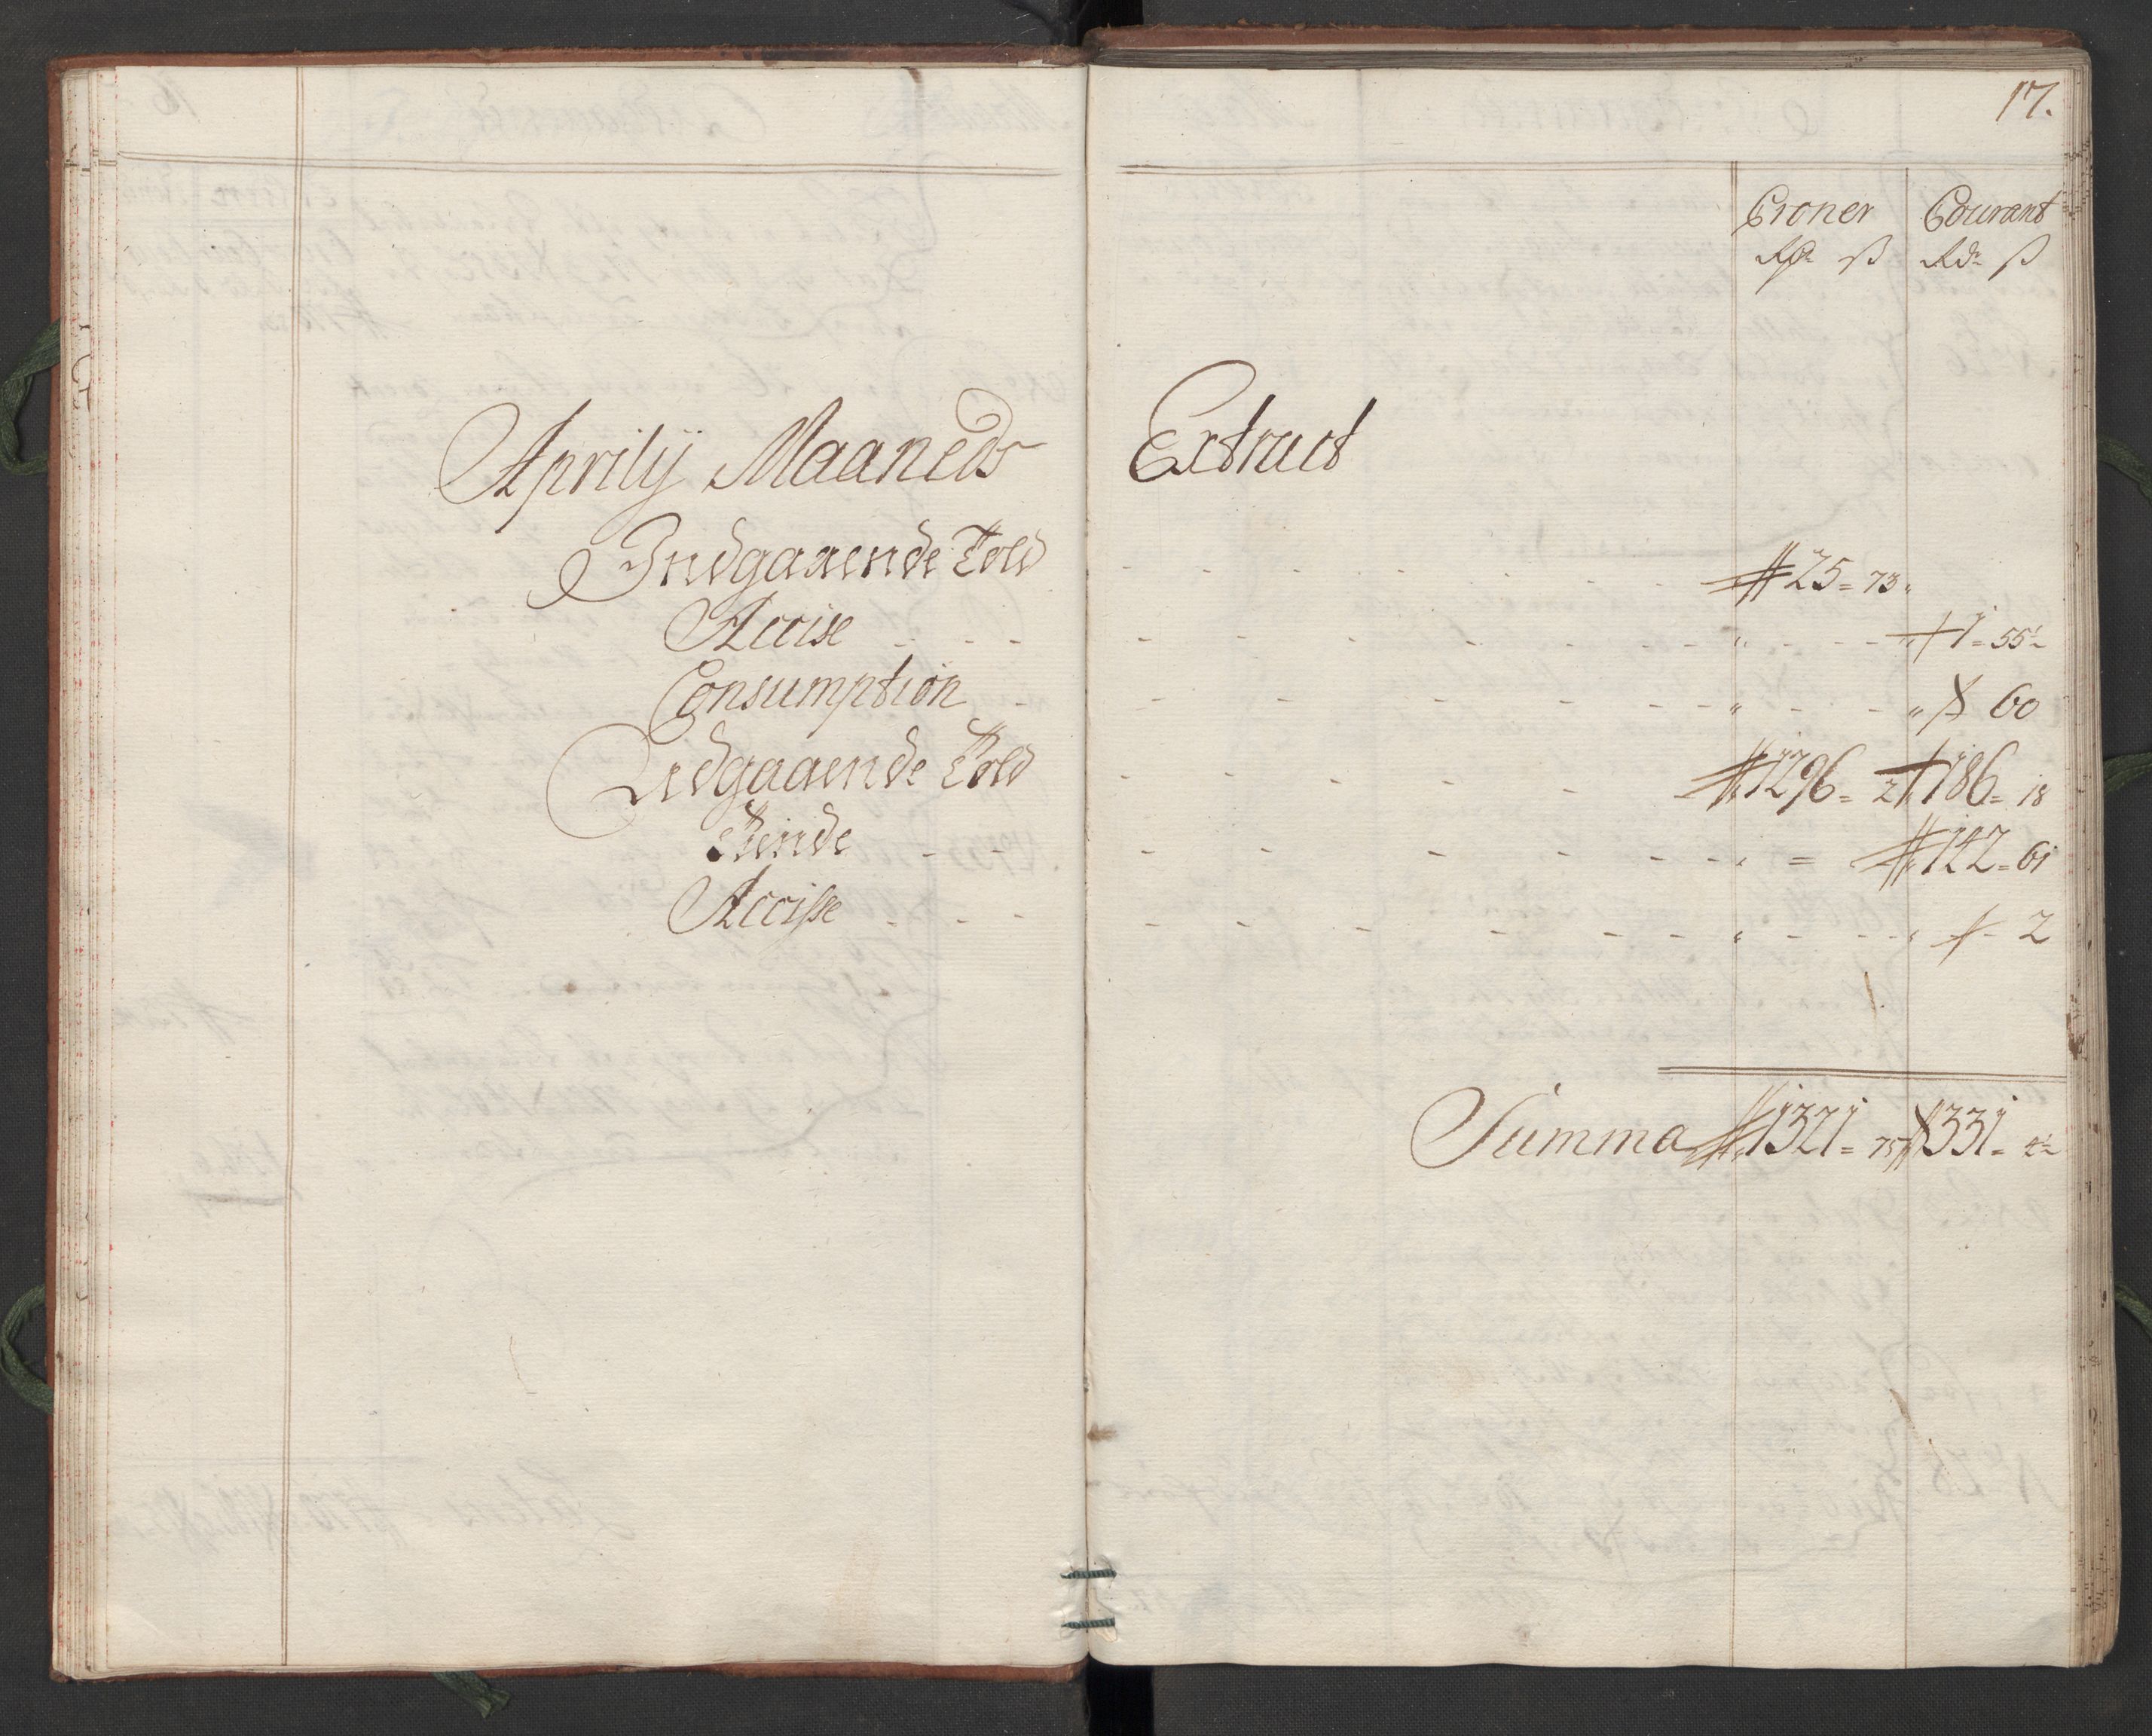 17.
Croner Courant
Rdr ß Rdr ß
Aprilij Maaneds Extract
Indgaaende Told - - - - - - - 25 = 73 "
Accise - - - - - - - - - " - - - - " 1 - 55½
Consumption - - - - - - - - " - - - " 60
Udgaaende Told - - - - - 1296 = 2 186 = 18
Tiende - - - - - - - - - " = 142 = 61
Accisse - - - - - - - - - - " - - - " - 2
Summa 1321 = 75 331 = 4½